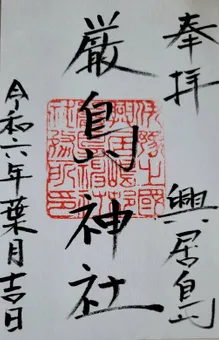 奉拝
興居島
厳島神社
令和六年葉月吉日